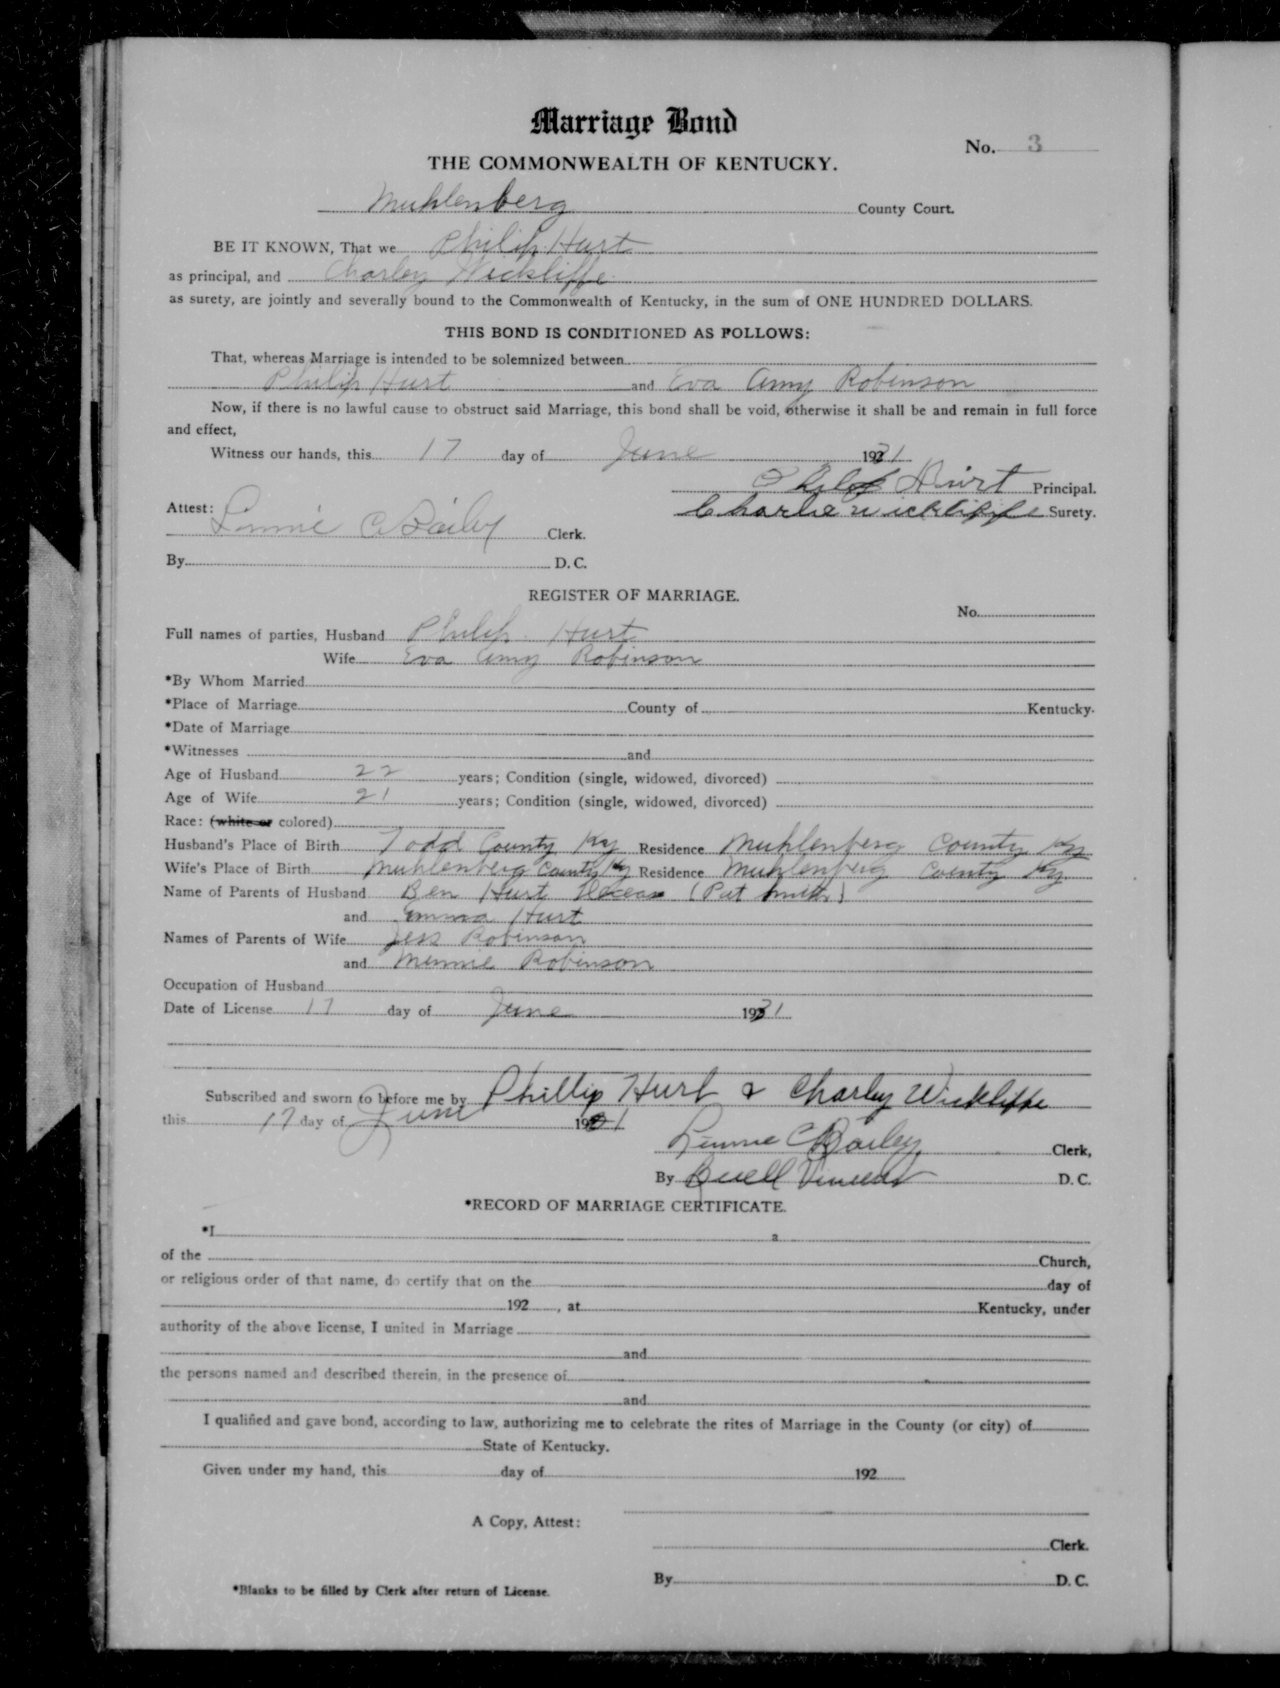 Marriage Bond
No. 3
THE COMMONWEALTH OF KENTUCKY.
Muhlenberg County Court.
BE IT KNOWN, That we Philip Hurt
as principal, and Charley Wickliffe
as surety, are jointly and severally bound to the Commonwealth of Kentucky, in the sum of ONE HUNDRED DOLLARS.
THIS BOND IS CONDITIONED AS FOLLOWS:
That, whereas Marriage is intended to be solemnized between
Philip Hurt and Eva Amy Robinson
Now, if there is no lawful cause to obstruct said Marriage, this bond shall be void, otherwise it shall be and remain in full force
and effect,
Witness our hands, this 17 day of June 1931
Philip Hurt Principal.
Attest: Charlie Wickliffe Surety.
Lennie C Bailey Clerk.
By D. C.
REGISTER OF MARRIAGE.
No.
Full names of parties, Husband Philip Hurt
Wife Eva Amy Robinson
*By Whom Married
*Place of Marriage County of Kentucky.
*Date of Marriage
*Witnesses and
Age of Husband 22 years; Condition (single, widowed, divorced)
Age of Wife 21 years; Condition (single, widowed, divorced)
Race: (white or colored)
Husband's Place of Birth Todd County Ky Residence Muhlenberg County Ky
Wife's Place of Birth Muhlenberg County Ky Residence Muhlenberg County Ky
Name of Parents of Husband Ben Hurt (Pat
and Emma Hurt
Names of Parents of Wife Jess Robinson
and Minnie Robinson
Occupation of Husband
Date of License 17 day of June 1931
Subscribed and sworn to before me by Phillip Hurt & Charley Wickliffe
this 17 day of June 1931
Lennie C Bailey Clerk,
By Buell Vincent D. C.
*RECORD OF MARRIAGE CERTIFICATE.
*I a
of the Church,
or religious order of that name, do certify that on the day of
192 , at Kentucky, under
authority of the above license, I united in Marriage
and
the persons named and described therein, in the presence of
and
I qualified and gave bond, according to law, authorizing me to celebrate the rites of Marriage in the County (or city) of
State of Kentucky.
Given under my hand, this day of 192
A Copy, Attest:
Clerk.
By D. C.
*Blanks to be filled by Clerk after return of License.